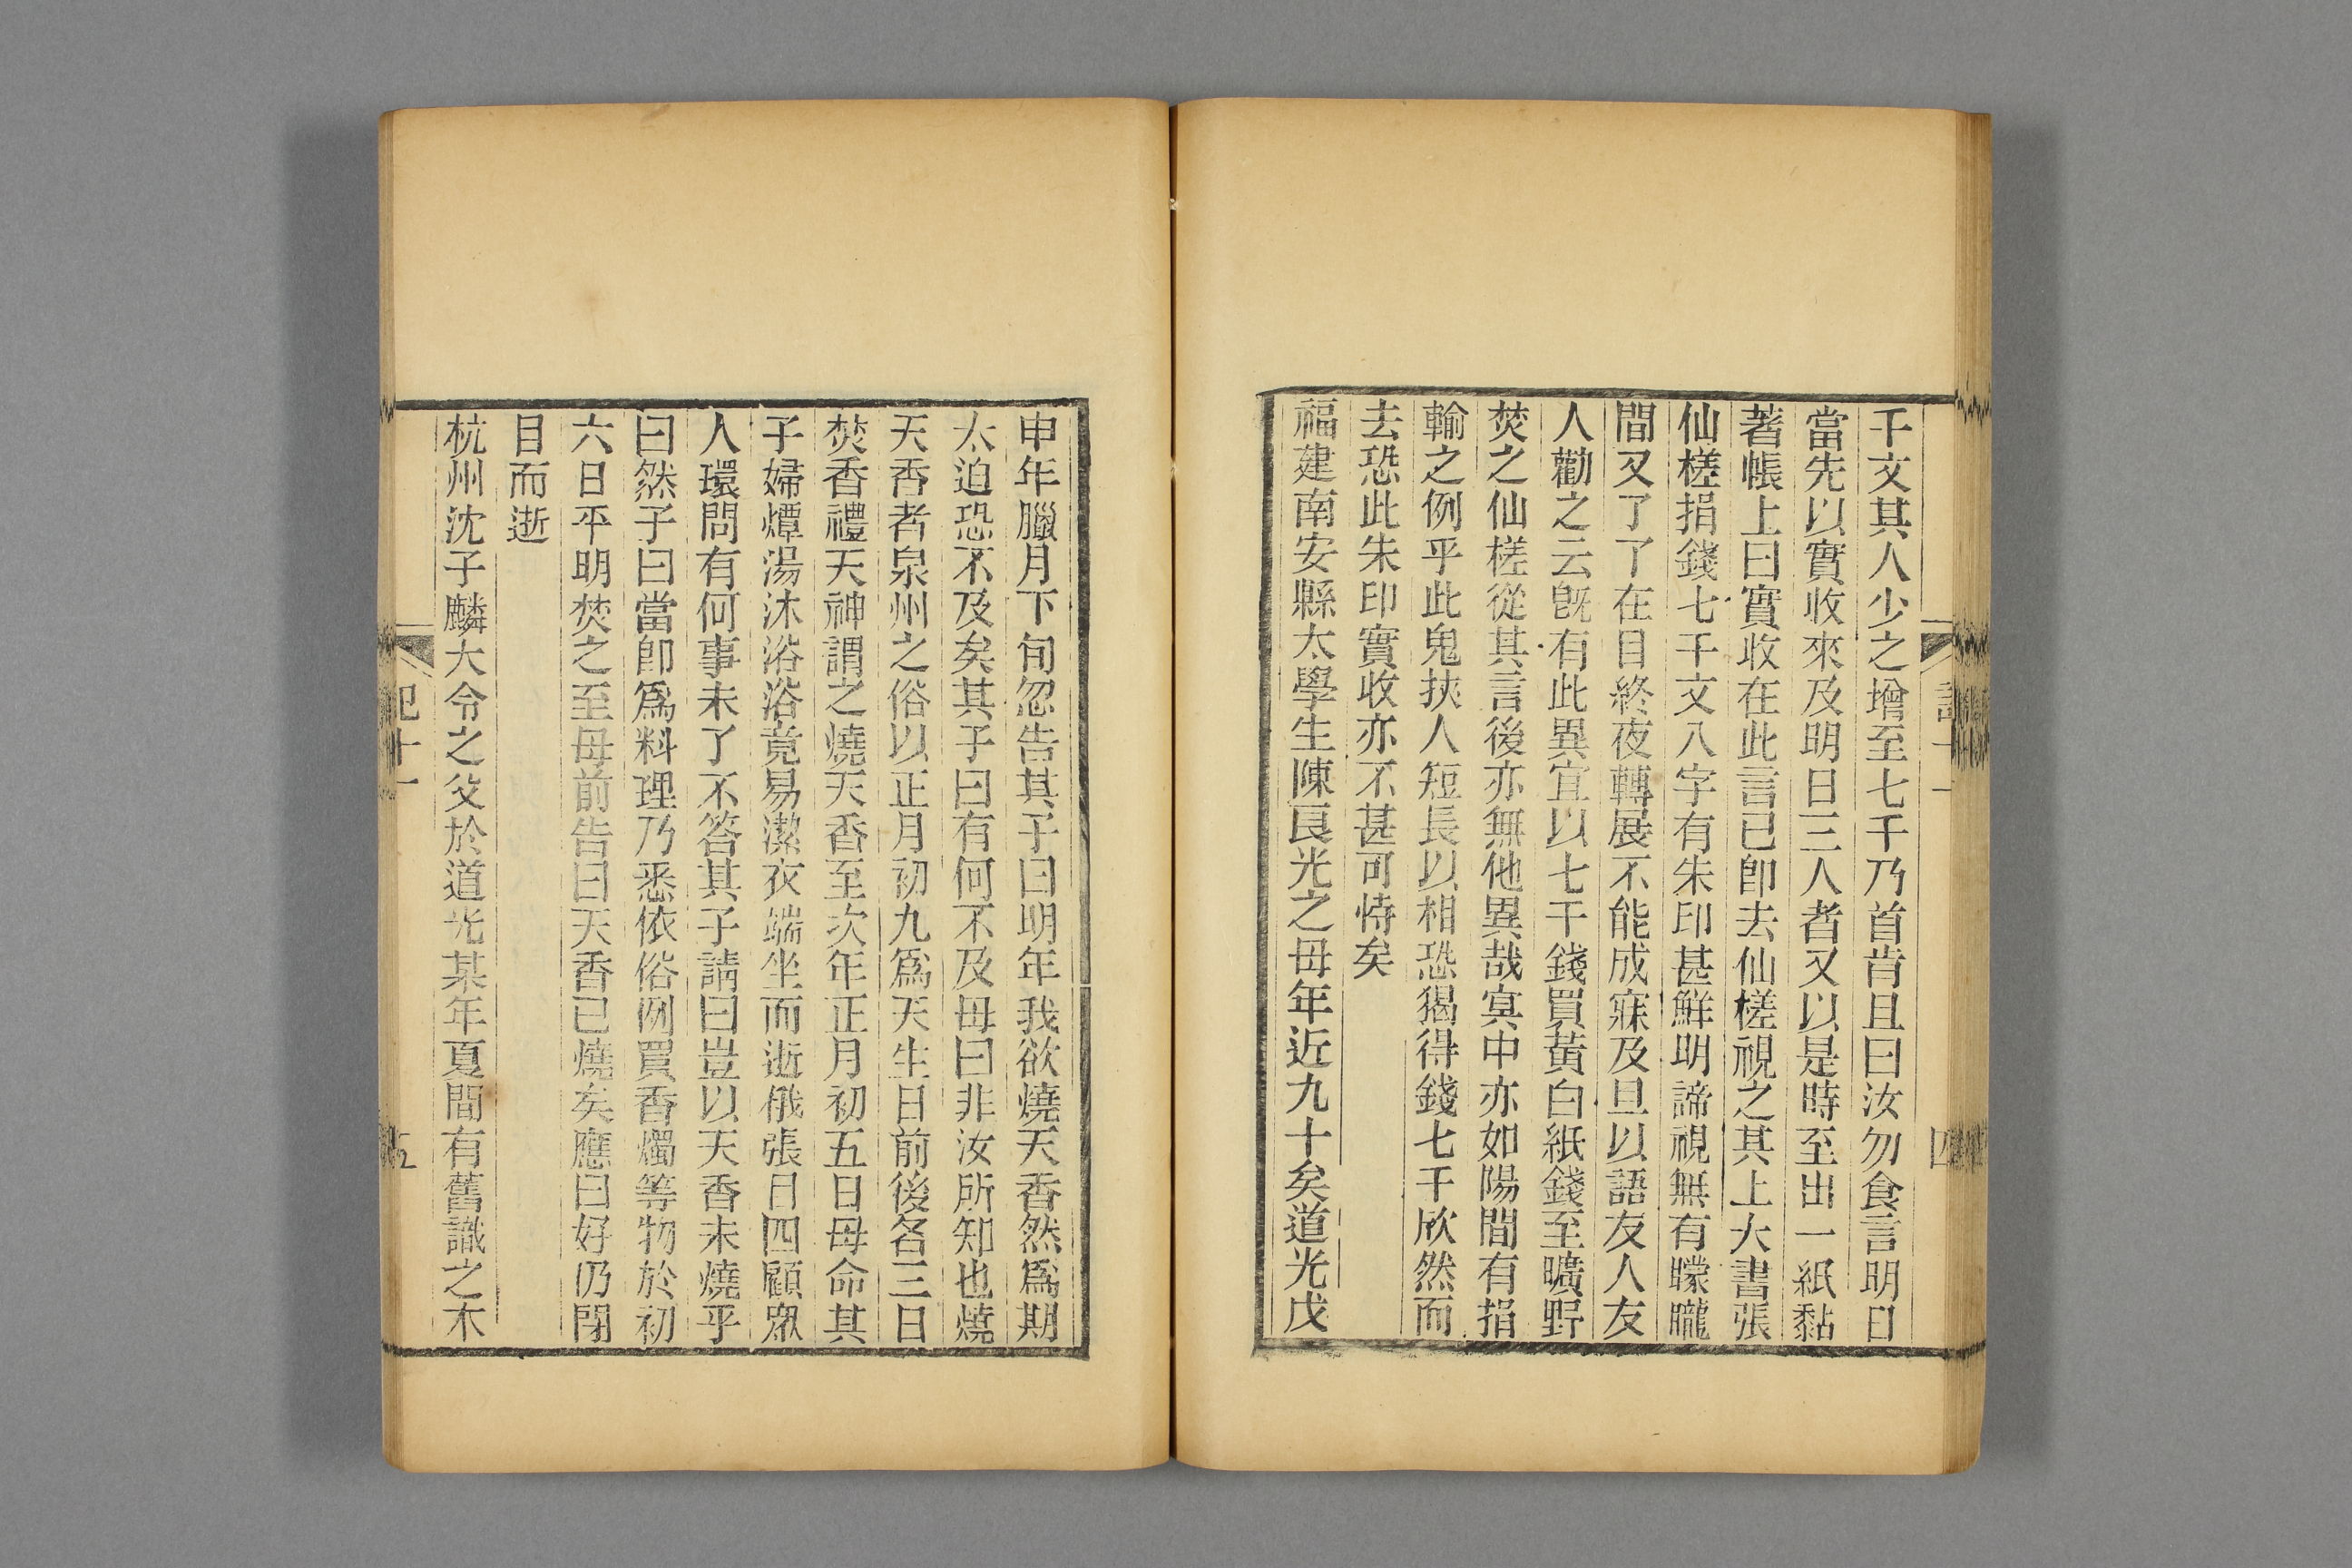 千文其人少之增至七千乃首肯且曰汝勿食言明日
當先以實收來及明日三人者又以是時至出一紙黏
著帳上曰實收在此言已卽去仙槎視之其上大書張
仙槎捐錢七千文八字有朱印甚鮮明諦視無有矇矓
間又了了在目終夜轉展不能成寐及旦以語友人友
人勸之云旣有此異宜以七千錢買黃白紙錢至曠野
焚之仙槎從其言後亦無他異哉冥中亦如陽間有捐
輸之例乎此鬼挾人短長以相恐猲得錢七千欣然而
去恐此朱印實收亦不甚可恃矣
福建南安縣太學生陳艮光之母年近九十矣道光戊
四
申年臘月下旬忽告其子曰明年我欲燒天香然爲期
太迫恐不及矣其子曰有何不及母曰非汝所知也燒
天香者泉州之俗以正月初九爲天生日前後各三日
焚香禮天神謂之燒天香至次年正月初五日母命其
子婦燂湯沐浴浴竟易潔衣端坐而逝俄張目四顧眾
人環問有何事未了不答其子請曰豈以天香未燒乎
曰然子曰當卽爲料理乃悉依俗例買香燭等物於初
六日平明焚之至母前告曰天香已燒矣應曰好仍閉
目而逝
杭州沈子麟大令之父於道光某年夏間有舊識之木
記十一
五